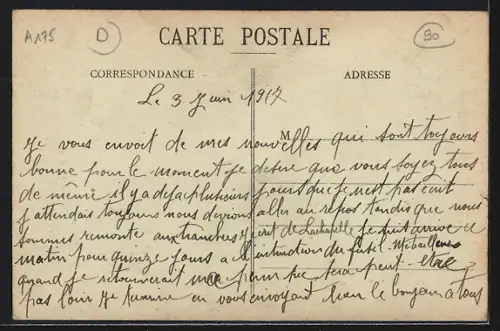 A175
D
90
CARTE POSTALE
CORRESPONDANCE
ADRESSE
Le 3 Juin 1917
M
Je vous envoit de mes nouvelles qui sont toujours
bonne pour le moment je desire que vous soyez tous
de même il y a deja plusieurs jours que je n'est pas ecrit
j'attendais toujours nous devrions aller au repos tandis que nous
sommes remonte aux tranchées je suis arrive ce
matin pour quinze jours a l'instruction du fusil Mitrailleur
quand je retournerait ma perm que sera peut etre
pas loin Je termine en vous envoyant bien le bonjour a tous